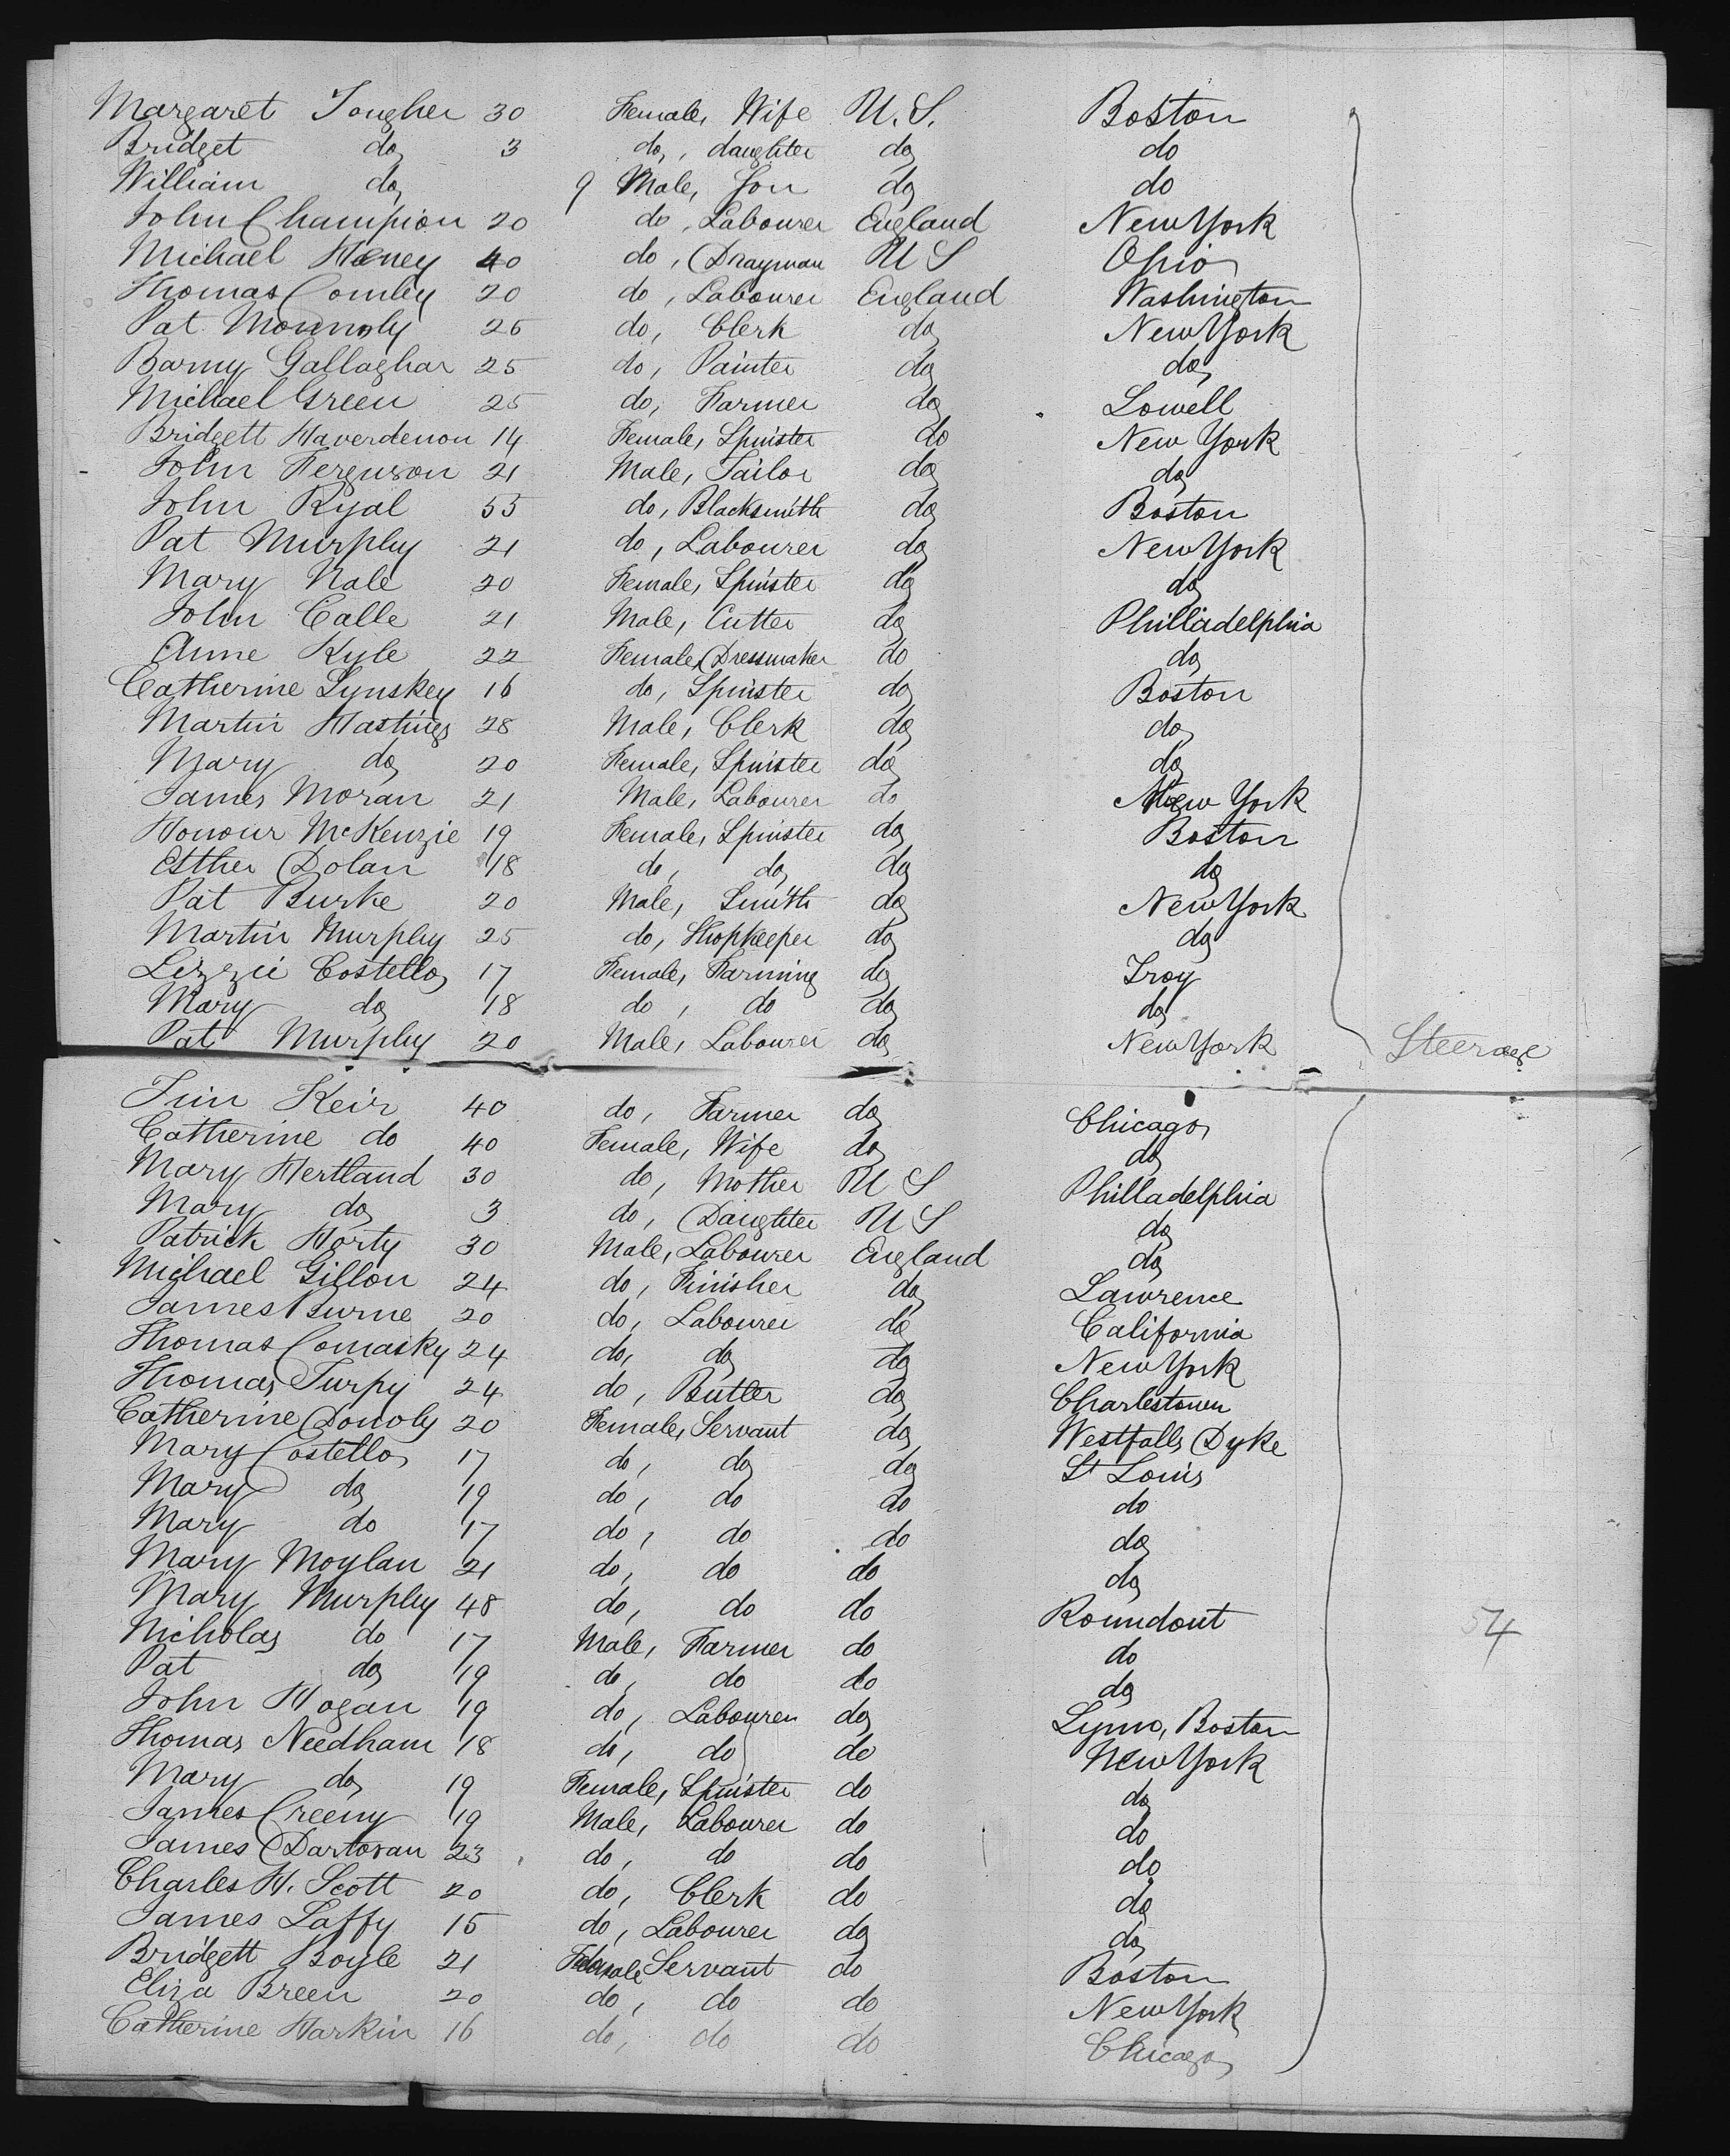 Margaret Tougher 30 Female, Wife U.S. Boston
Bridget do 3 do, daughter do do
William do 9 Male, Son do do
John Champion 20 do, Labourer England New York
Michael Heney 40 do, Drayman U S Ohio
Thomas Comley 20 do, Labourer England Washington
Pat 26 do, Clerk do New York
Barny Gallaghar 25 do, Painter do do
Michael Green 25 do, Farmer do Lowell
Bridgett Haverdenon 14 Female, Spinster do New York
John Ferguson 21 Male, Tailor do do
John Ryal 55 do, Blacksmith do Boston
Pat Murphy 21 do, Labourer do New York
Mary Nale 20 Female, Spinster do do
John Calle 21 Male, Cutter do Philladelphia
Anne Kyle 22 Female, Dressmaker do do
Catherine Lynskey 16 do, Spinster do Boston
Martin Hastings 28 Male, Clerk do do
Mary do 20 Female, Spinster do do
James Moran 21 Male, Labourer do New York
Honour McKenzie 19 Female, Spinster do Boston
Esther Dolan 18 do, do do do
Pat Burke 20 Male, Smith do New York
Martin Murphy 25 do, Shopkeeper do do
Lizzie Costello 17 Female, Farming do Troy
Mary do 18 do, do do do
Pat Murphy 20 Male, Labourer do New York Steerage
Jim Keir 40 do, Farmer do Chicago
Catherine do 40 Female, Wife do do
Mary Hertland 30 do, Mother U S Philladelphia
Mary do 3 do, Daughter U S do
Patrick Horty 30 Male, Labourer England do
Michael Gillon 24 do, Finisher do Lawrence
James Burne 20 do, Labourer do California
Thomas Comasky 24 do, do do New York
Thomas Turpy 24 do, Butler do Charlestown
Catherine Donoly 20 Female, Servant do Westfalls Dyke
Mary Costello 17 do, do do St Louis
Mary do 19 do, do do do
Mary do 17 do, do do do
Mary Moylan 21 do, do do do
Mary Murphy 48 do, do do Roundout
Nicholas do 17 Male, Farmer do do 54
Pat do 19 do, do do do
John Hogan 19 do, Labourer do Lynn, Boston
Thomas Needham 18 do, do do New York
Mary do 19 Female, Spinster do do
James Creeny 19 Male, Labourer do do
James Dartovan 23 do, do do do
Charles H. Scott 20 do, Clerk do do
James Laffy 15 do, Labourer do do
Bridgett Boyle 21 Female Servant do Boston
Eliza Breen 20 do, do do New York
Catherine Harkin 16 do, do do Chicago